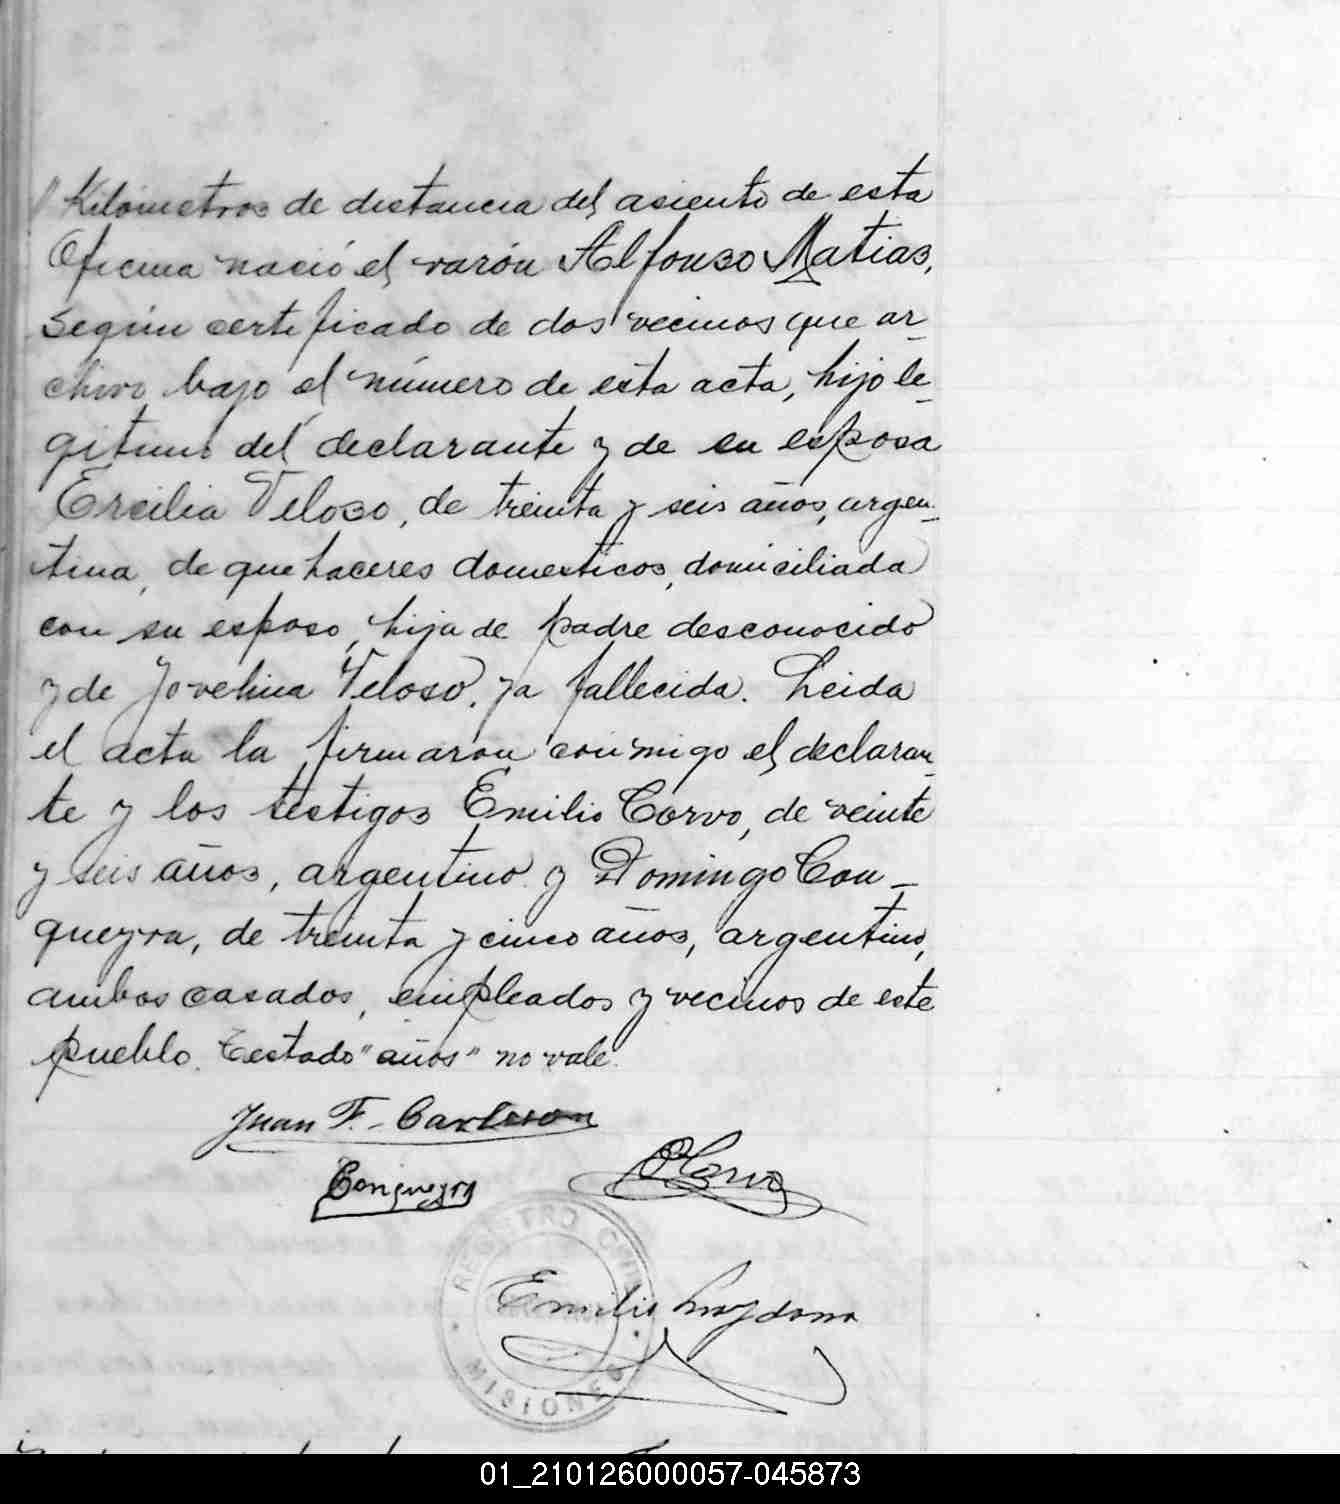 // Kilómetros de distancia del asiento de esta
Oficina nació el varón Alfonso Matias,
según certificado de dos vecinos que ar-
chivo bajo el número de esta acta, hijo le-
gitimo del declarante y de su esposa
Ercilia Veloso, de treinta y seis años, argen-
tina, de quehaceres domesticos, domiciliada
con su esposo, hija de padre desconocido
y de Jovelina Veloso, ya fallecida. Leida
el acta la firmaron conmigo el declaran-
te y los testigos Emilio Corvo, de veinte
y seis años, argentino y Domingo Con-
queyra, de treinta y cinco años, argentino,
ambos casados, empleados y vecinos de este
pueblo. Testado "años" no vale.
Juan F. Carlsson
Conqueyra
Corvo
REGISTRO CIVIL
Emilio
MISIONES
01_210126000057-045873